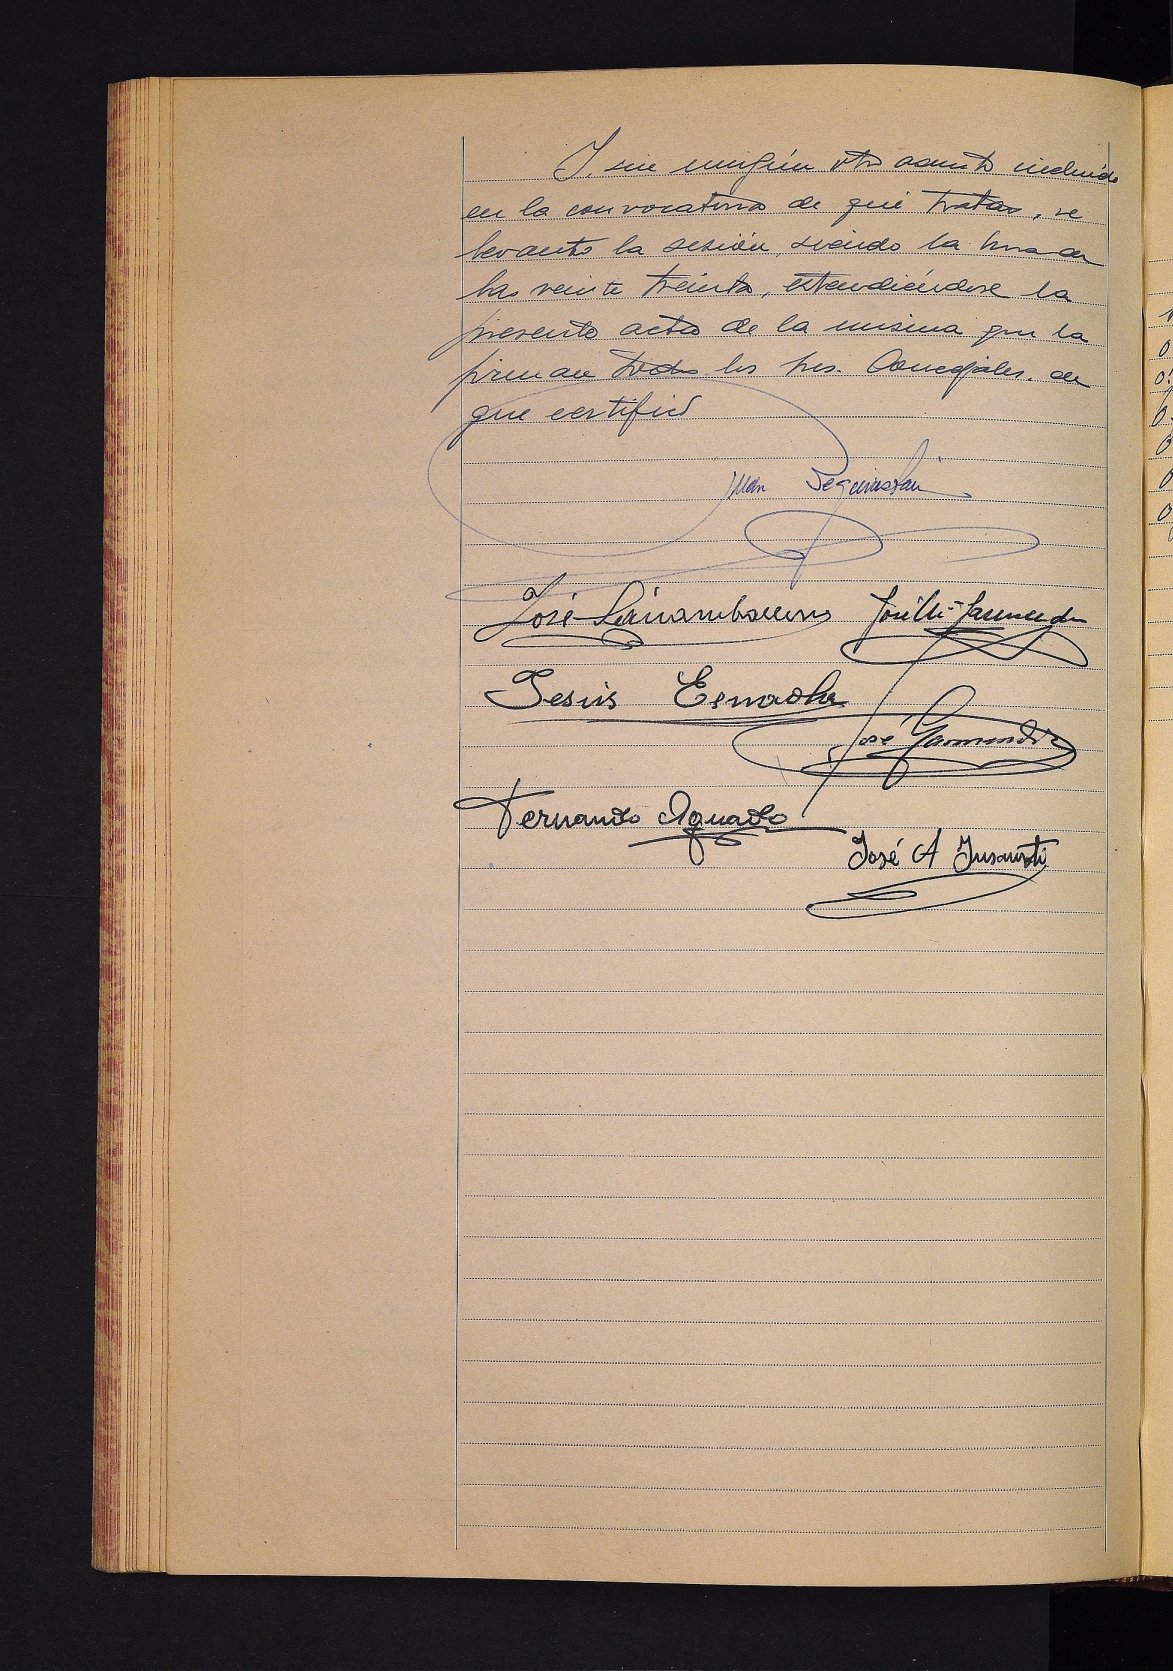 Y sin ningún otro asunto incluído
en la convocatoria de que tratar, se
levanto la sesión, siendo la hora de
las veinte treinta, extendiéndose la
presente acta de la misma que la
firman todos los Srs. Concejales. de
que certifico
Juan Beguiristain
José
Jesús
José Garmendia
Fernando Aguado
José A Insausti